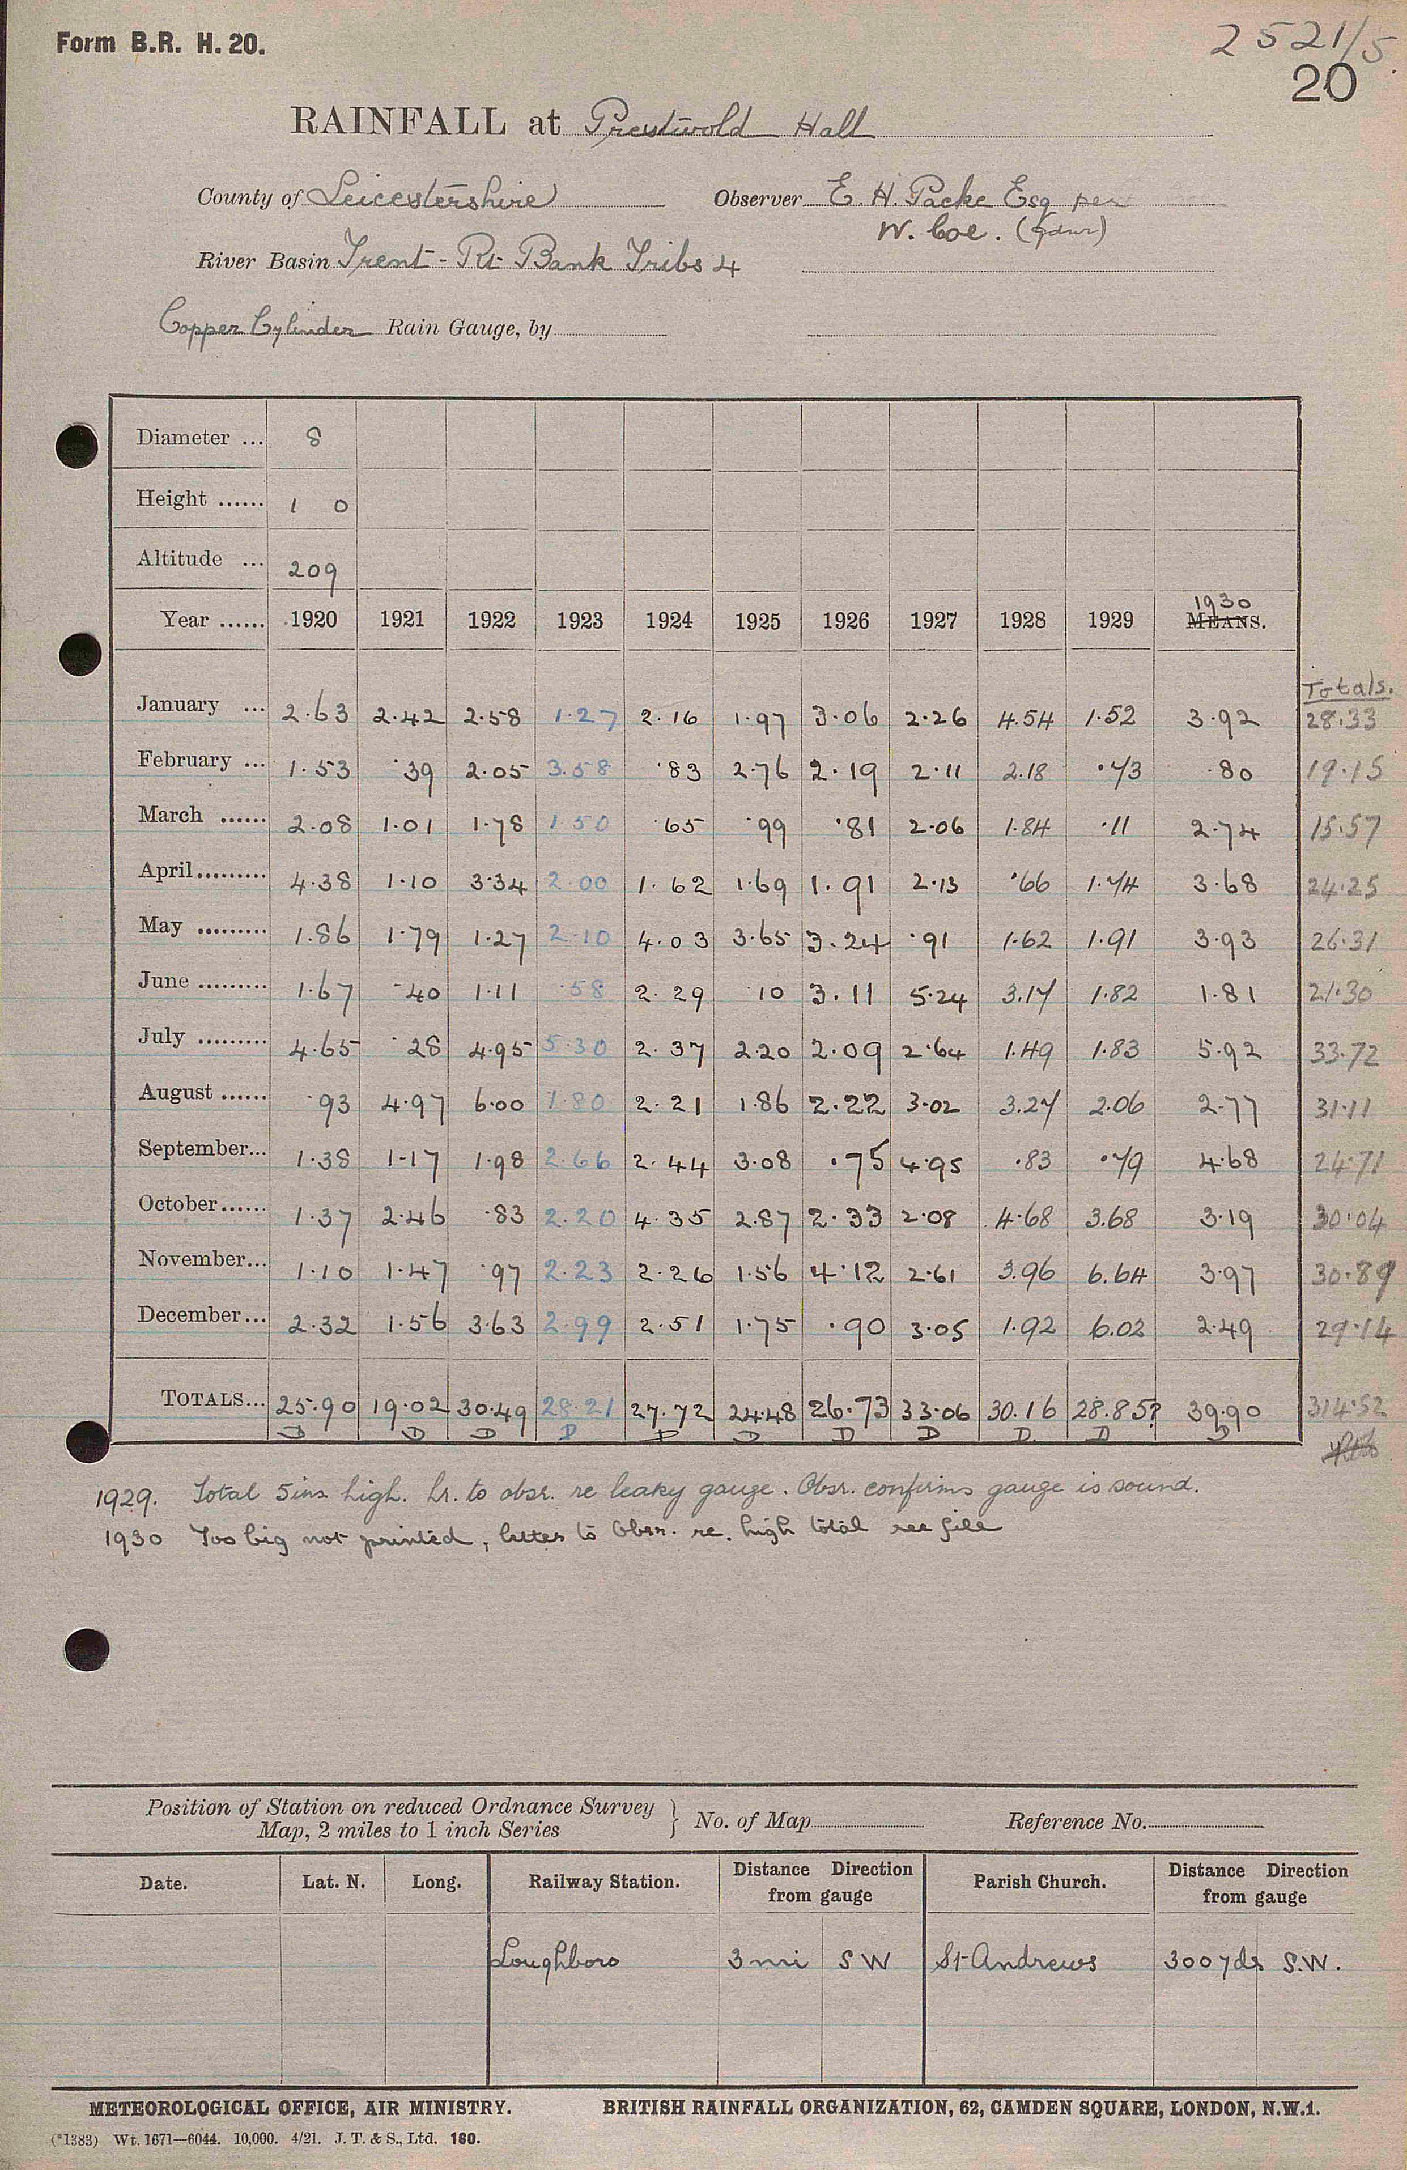 Form B.R. H. 20.
2521/5.
20
RAINFALL at Prestwold Hall
County of Leicestershire Observer E H. Packe Esq per
W. Coe. (Gdnr)
River Basin Trent - Rt Bank Tribs 4
Copper Cylinder Rain Gauge, by
Diameter ... 8
Height ...... 1 0
Altitude ... 209
Year ...... 1920 1921 1922 1923 1924 1925 1926 1927 1928 1929 1930 MEANS.
Totals.
January ... 2.63 2.42 2.58 1.27 2.16 1.97 3.06 2.26 4.54 1.52 3.92 28.33
February ... 1.53 .39 2.05 3.58 .83 2.76 2.19 2.11 2.18 .73 .80 19.15
March ...... 2.08 1.01 1.78 1.50 .65 .99 .81 2.06 1.84 .11 2.74 15.57
April......... 4.38 1.10 3.34 2.00 1.62 1.69 1.91 2.13 .66 1.74 3.68 24.25
May ......... 1.86 1.79 1.27 2.10 4.03 3.65 3.24 .91 1.62 1.91 3.93 26.31
June ......... 1.67 .40 1.11 .58 2.29 10 3.11 5.24 3.17 1.82 1.81 21.30
July ......... 4.65 .28 4.95 5.30 2.37 2.20 2.09 2.64 1.49 1.83 5.92 33.72
August ...... .93 4.97 6.00 1.80 2.21 1.86 2.22 3.02 3.27 2.06 2.77 31.11
September... 1.38 1.17 1.98 2.66 2.44 3.08 .75 4.95 .83 .79 4.68 24.71
October...... 1.37 2.46 .83 2.20 4.35 2.87 2.33 2.08 4.68 3.68 3.19 30.04
November... 1.10 1.47 .97 2.23 2.26 1.56 4.12 2.61 3.96 6.64 3.97 30.89
December... 2.32 1.56 3.63 2.99 2.51 1.75 .90 3.05 1.92 6.02 2.49 29.14
TOTALS... 25.90 19.02 30.49 28.21 27.72 24.48 26.73 33.06 30.16 28.85? 39.90 314.52
D D D D D D D D D. D D
1929. Total 5ins high. Lr. to obsr. re leaky gauge. Obsr. confirms gauge is sound.
1930 Too big not printed, letter to Obsr. re. high total see file
Position of Station on reduced Ordnance Survey
Map, 2 miles to 1 inch Series } No. of Map Reference No.
Date. Lat. N. Long. Railway Station. Distance Direction from gauge Parish Church. Distance Direction from gauge
Loughboro 3 mi SW St Andrews 300 yds S.W.
METEOROLOGICAL OFFICE, AIR MINISTRY. BRITISH RAINFALL ORGANIZATION, 62, CAMDEN SQUARE, LONDON, N.W.1.
(*1383) Wt. 1671—6044. 10,000. 4/21. J. T. & S., Ltd. 180.